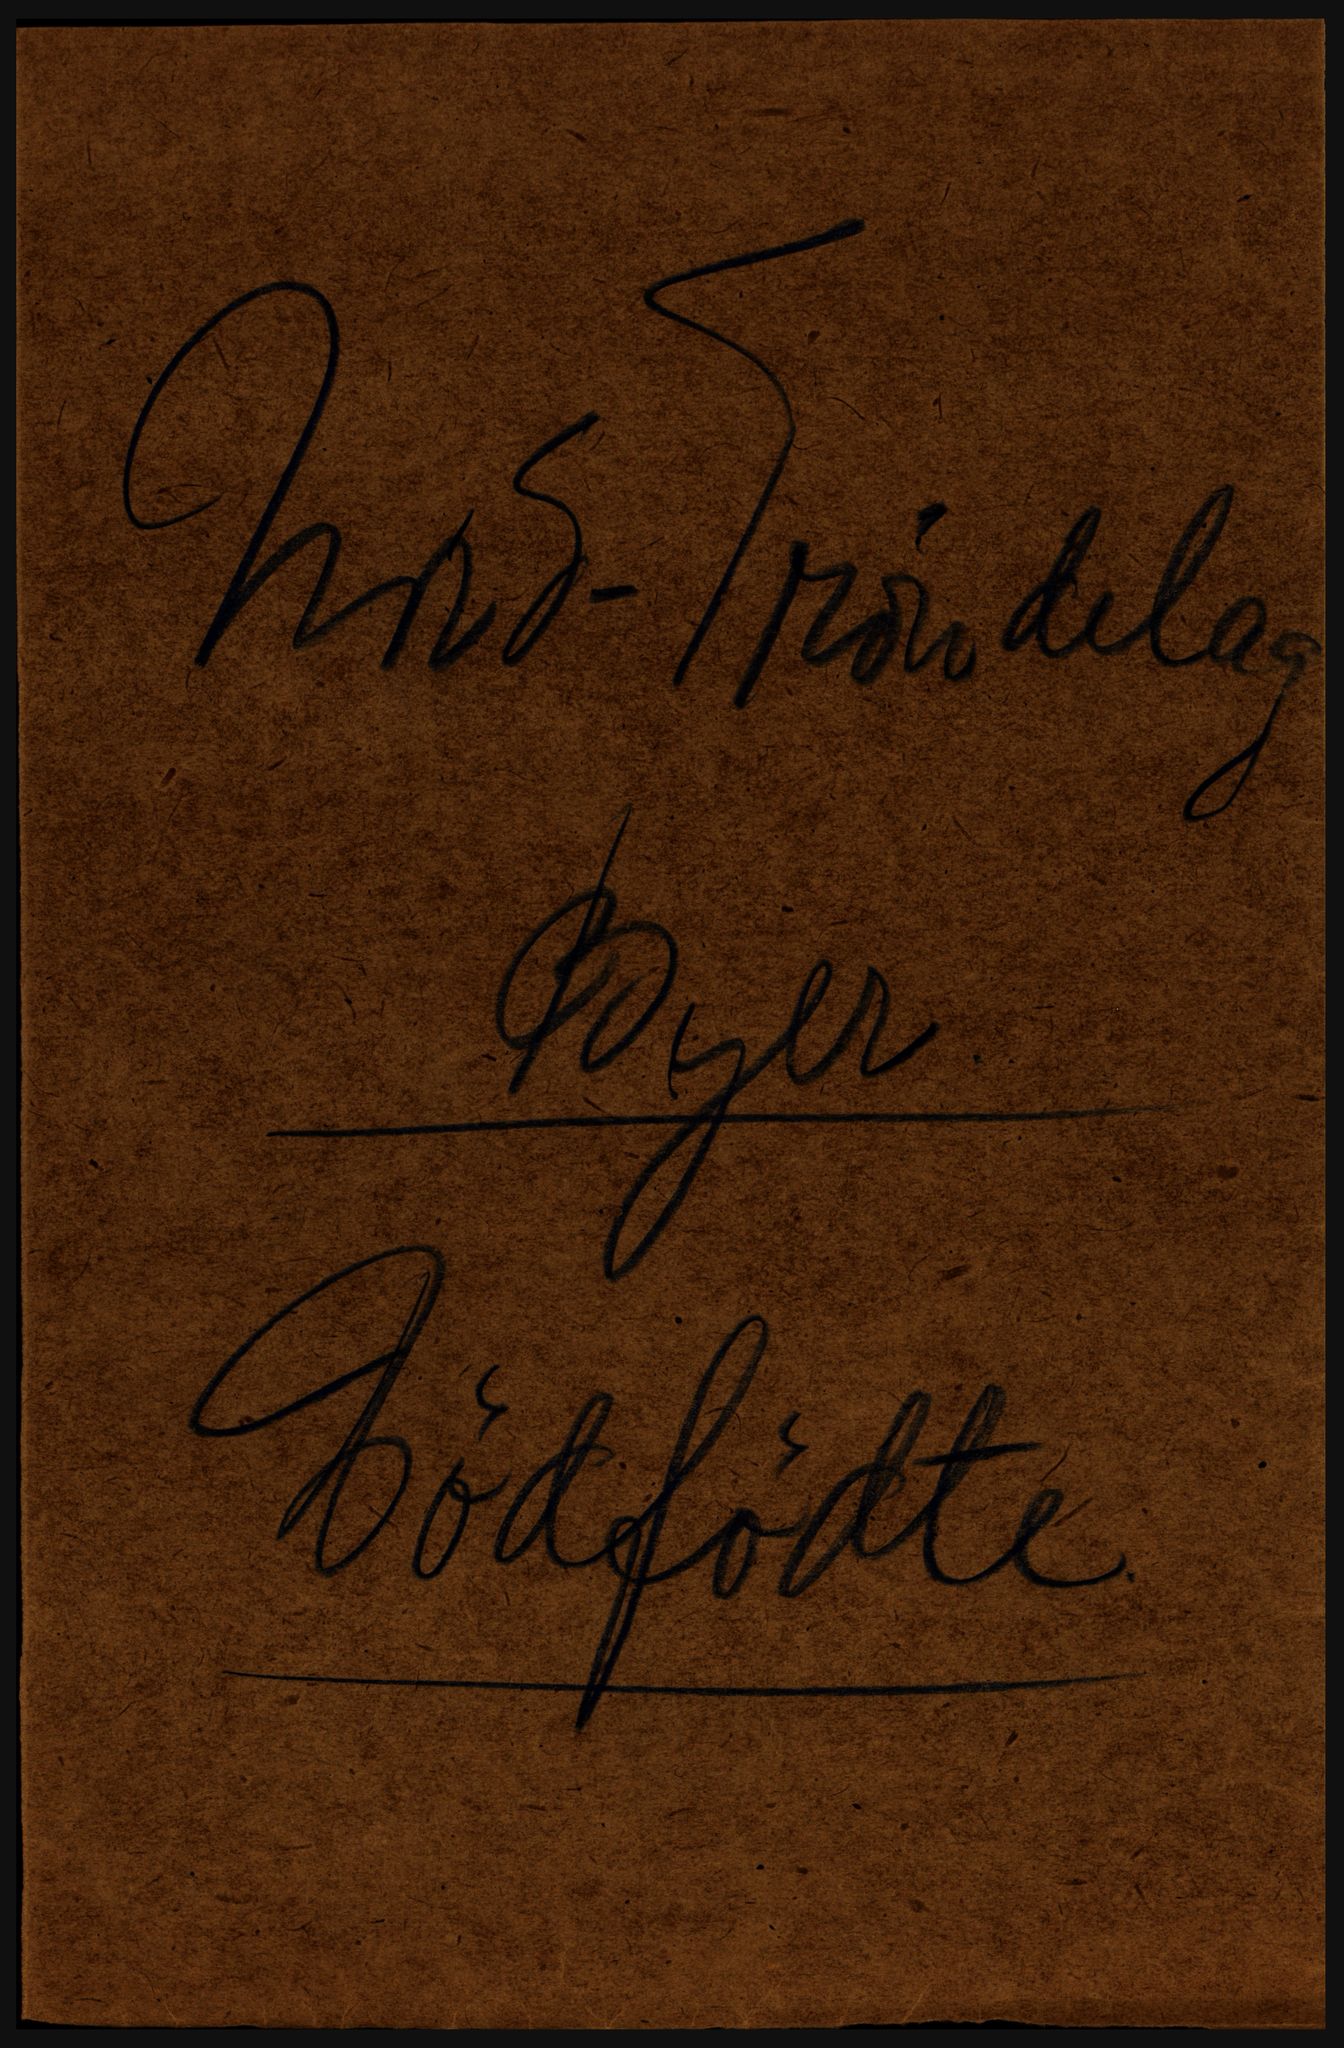 Nord-Tröndelag
Byer
Dödfödte.